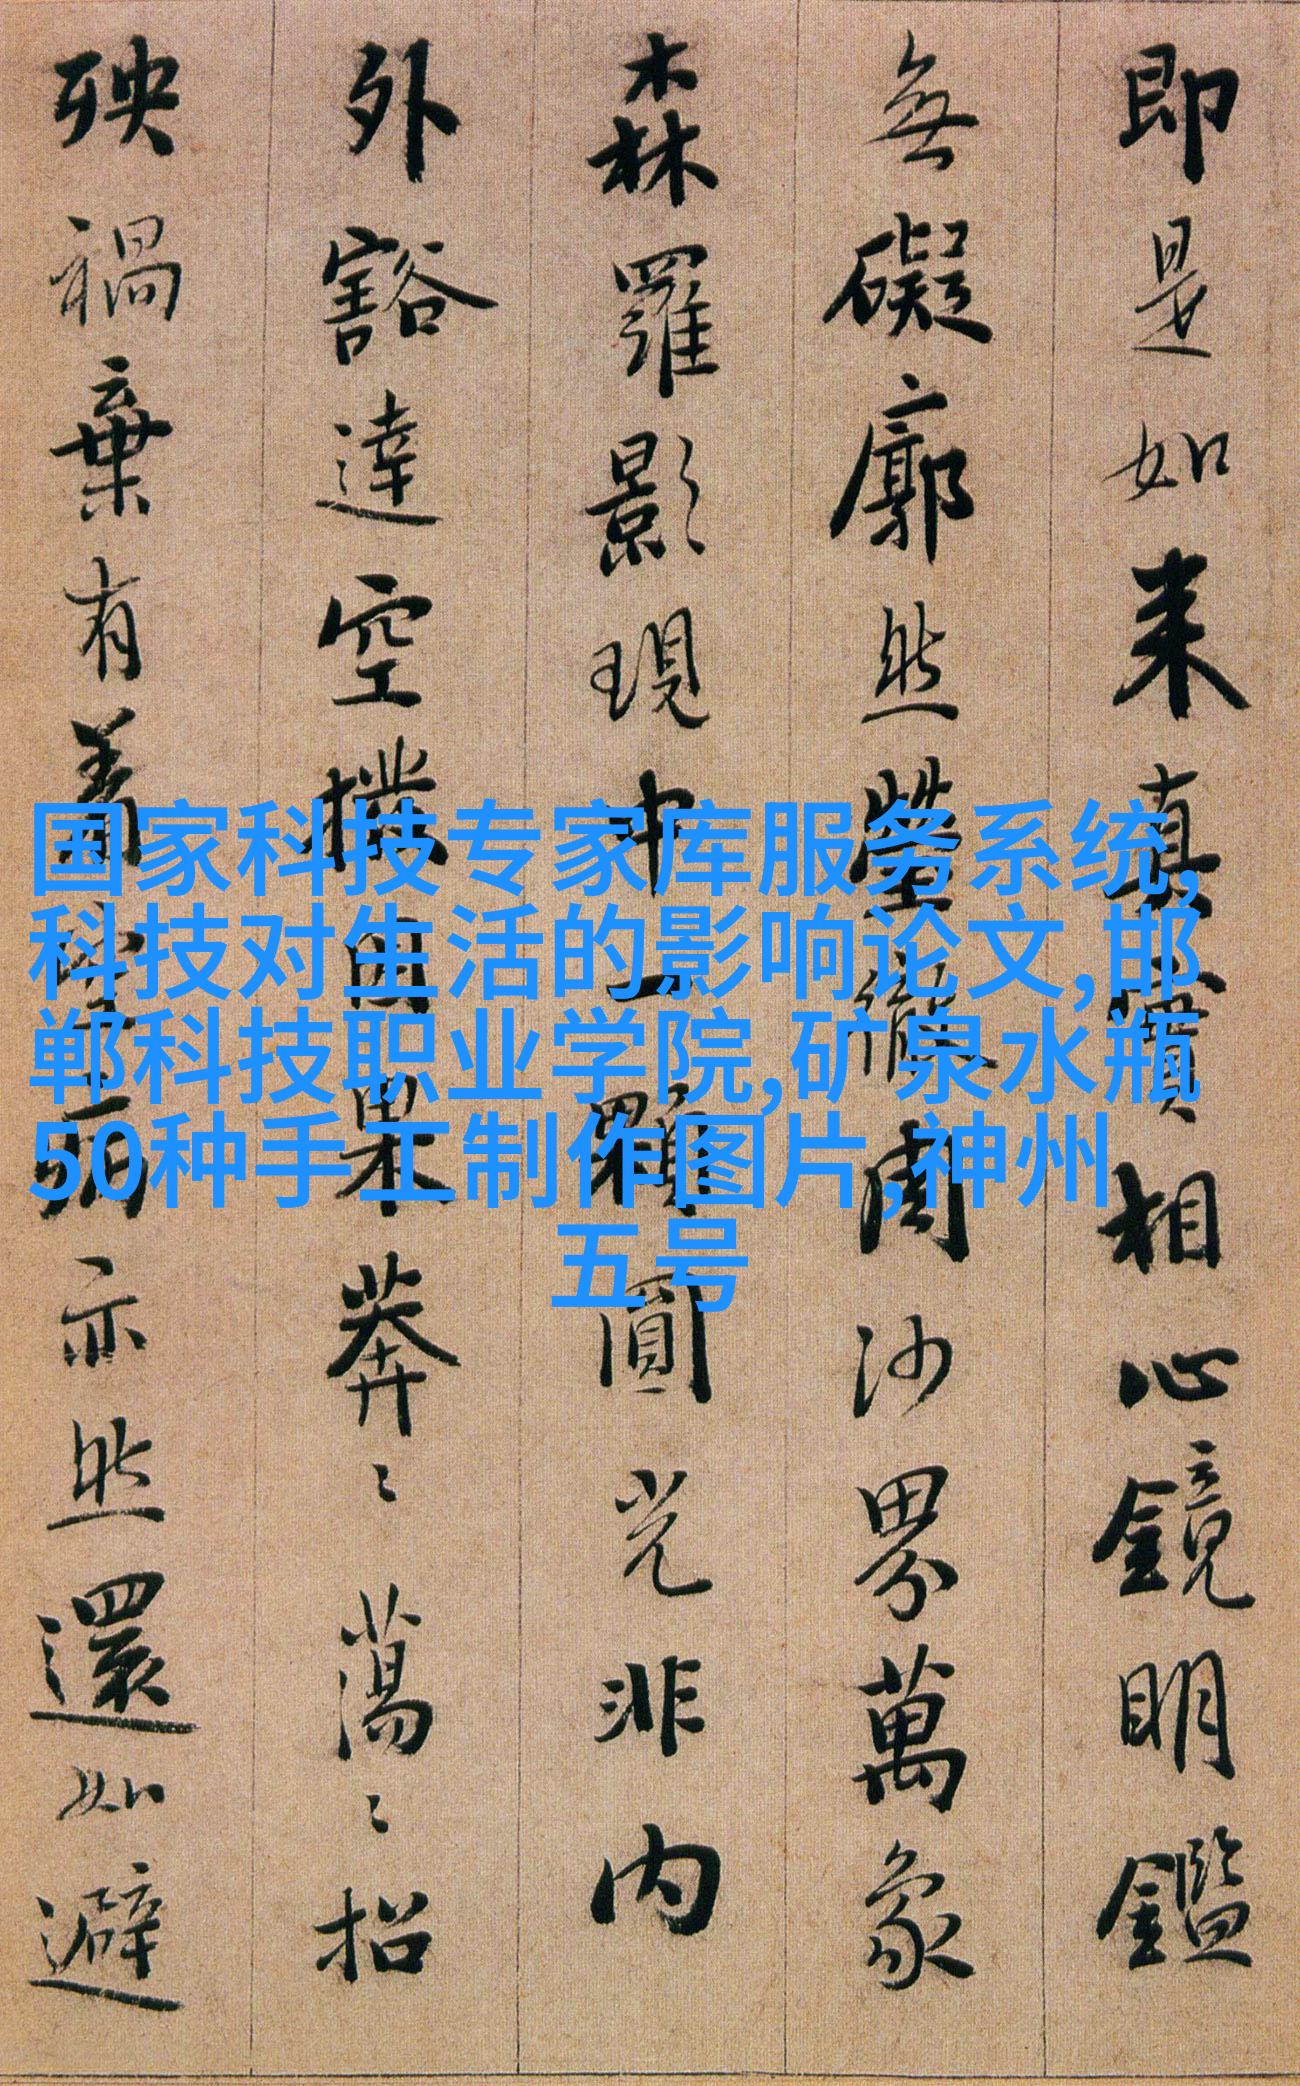 即是如来真實相心鏡明鑑
無礙廓然瑩徹周沙界萬象
森羅影現中一顆圓光非内
外豁達空撥因果莽〻蕩〻招
殃禍棄有着空病亦然還如避
国家科技专家库服务系统,
科技对生活的影响论文,邯
郸科技职业学院,矿泉水瓶
50种手工制作图片,神州
五号